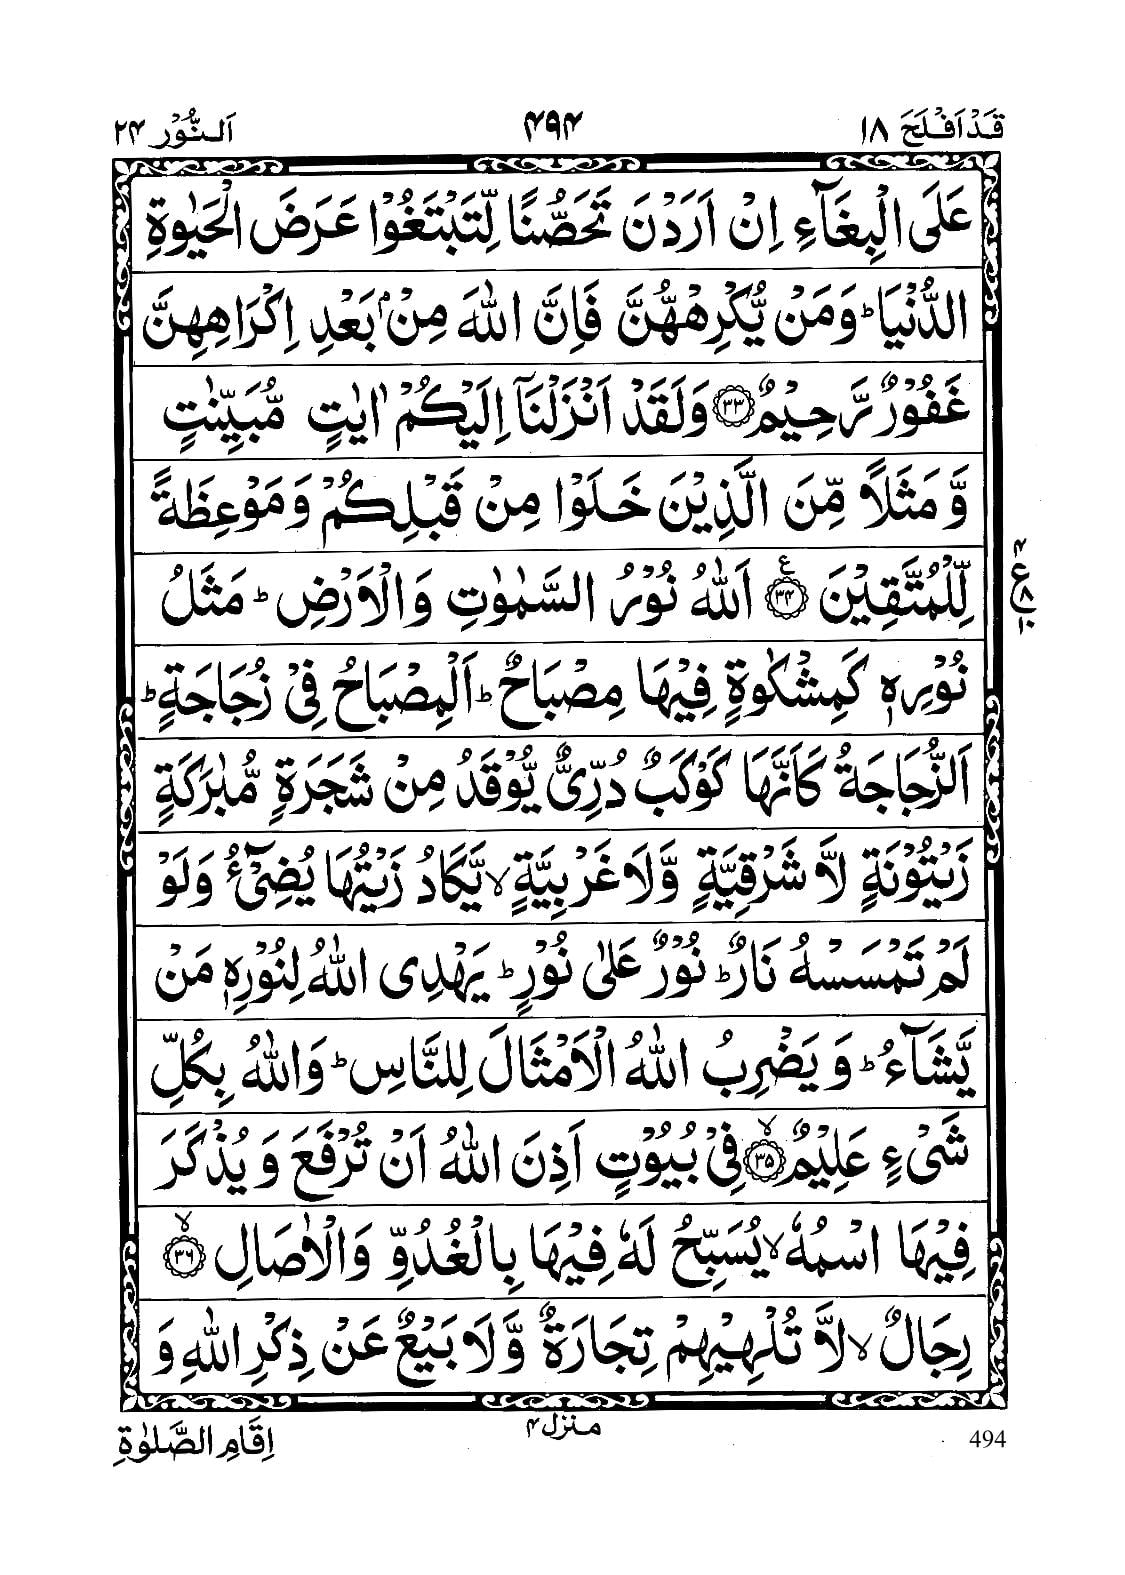 قَدْ اَفْلَحَ ۱۸
۴۹۴
اَلنُّوْر ۲۴
عَلَى الْبِغَآءِ اِنْ اَرَدْنَ تَحَصُّنًا لِّتَبْتَغُوْا عَرَضَ الْحَيٰوةِ
الدُّنْيَا ؕ وَمَنْ يُّكْرِهْهُّنَّ فَاِنَّ اللّٰهَ مِنْۢ بَعْدِ اِكْرَاهِهِنَّ
غَفُوْرٌ رَّحِيْمٌ ﴿۳۳﴾ وَلَقَدْ اَنْزَلْنَاۤ اِلَيْكُمْ اٰيٰتٍ مُّبَيِّنٰتٍ
وَّمَثَلًا مِّنَ الَّذِيْنَ خَلَوْا مِنْ قَبْلِكُمْ وَمَوْعِظَةً
لِّلْمُتَّقِيْنَ ﴿۳۴﴾ ع اَللّٰهُ نُوْرُ السَّمٰوٰتِ وَالْاَرْضِ ؕ مَثَلُ
۴ ع ۸ ۱۰
نُوْرِهٖ كَمِشْكٰوةٍ فِيْهَا مِصْبَاحٌ ؕ اَلْمِصْبَاحُ فِيْ زُجَاجَةٍ ؕ
اَلزُّجَاجَةُ كَاَنَّهَا كَوْكَبٌ دُرِّيٌّ يُّوْقَدُ مِنْ شَجَرَةٍ مُّبٰرَكَةٍ
زَيْتُوْنَةٍ لَّا شَرْقِيَّةٍ وَّلَا غَرْبِيَّةٍ ۙ يَّكَادُ زَيْتُهَا يُضِيْٓءُ وَلَوْ
لَمْ تَمْسَسْهُ نَارٌ ؕ نُوْرٌ عَلٰى نُوْرٍ ؕ يَهْدِى اللّٰهُ لِنُوْرِهٖ مَنْ
يَّشَآءُ ؕ وَيَضْرِبُ اللّٰهُ الْاَمْثَالَ لِلنَّاسِ ؕ وَاللّٰهُ بِكُلِّ
شَيْءٍ عَلِيْمٌ ﴿۳۵﴾ ۙ فِيْ بُيُوْتٍ اَذِنَ اللّٰهُ اَنْ تُرْفَعَ وَيُذْكَرَ
فِيْهَا اسْمُهٗ ۙ يُسَبِّحُ لَهٗ فِيْهَا بِالْغُدُوِّ وَالْاٰصَالِ ﴿۳۶﴾ ۙ
رِجَالٌ ۙ لَّا تُلْهِيْهِمْ تِجَارَةٌ وَّلَا بَيْعٌ عَنْ ذِكْرِ اللّٰهِ وَ
494
منزل ۴
اِقَامِ الصَّلٰوةِ